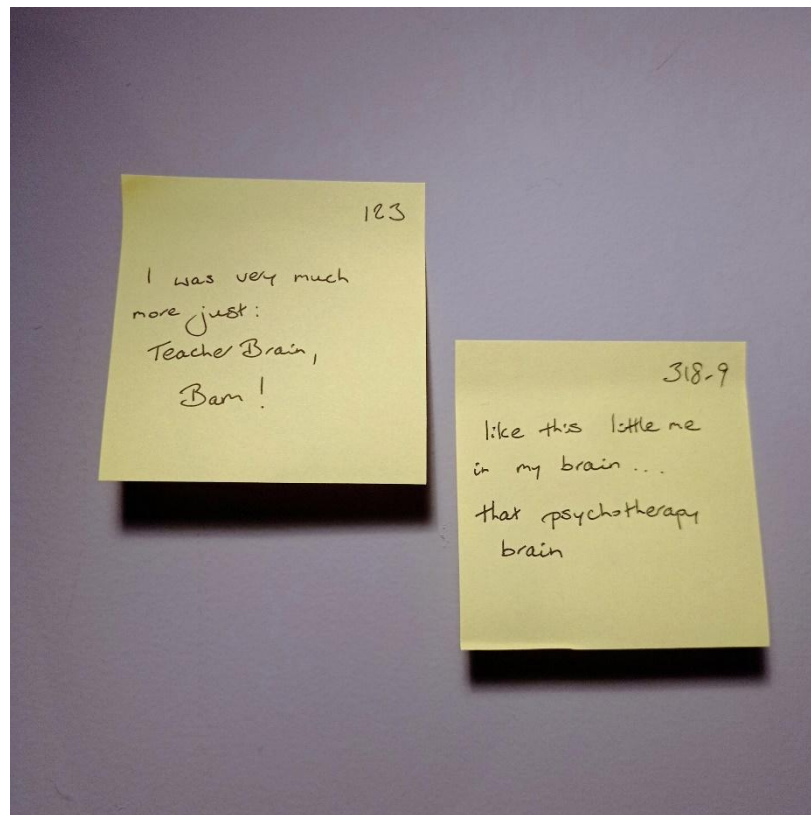 123
I was very much
more just:
Teacher Brain,
Bam!
318-9
like this little me
in my brain...
that psychotherapy
brain